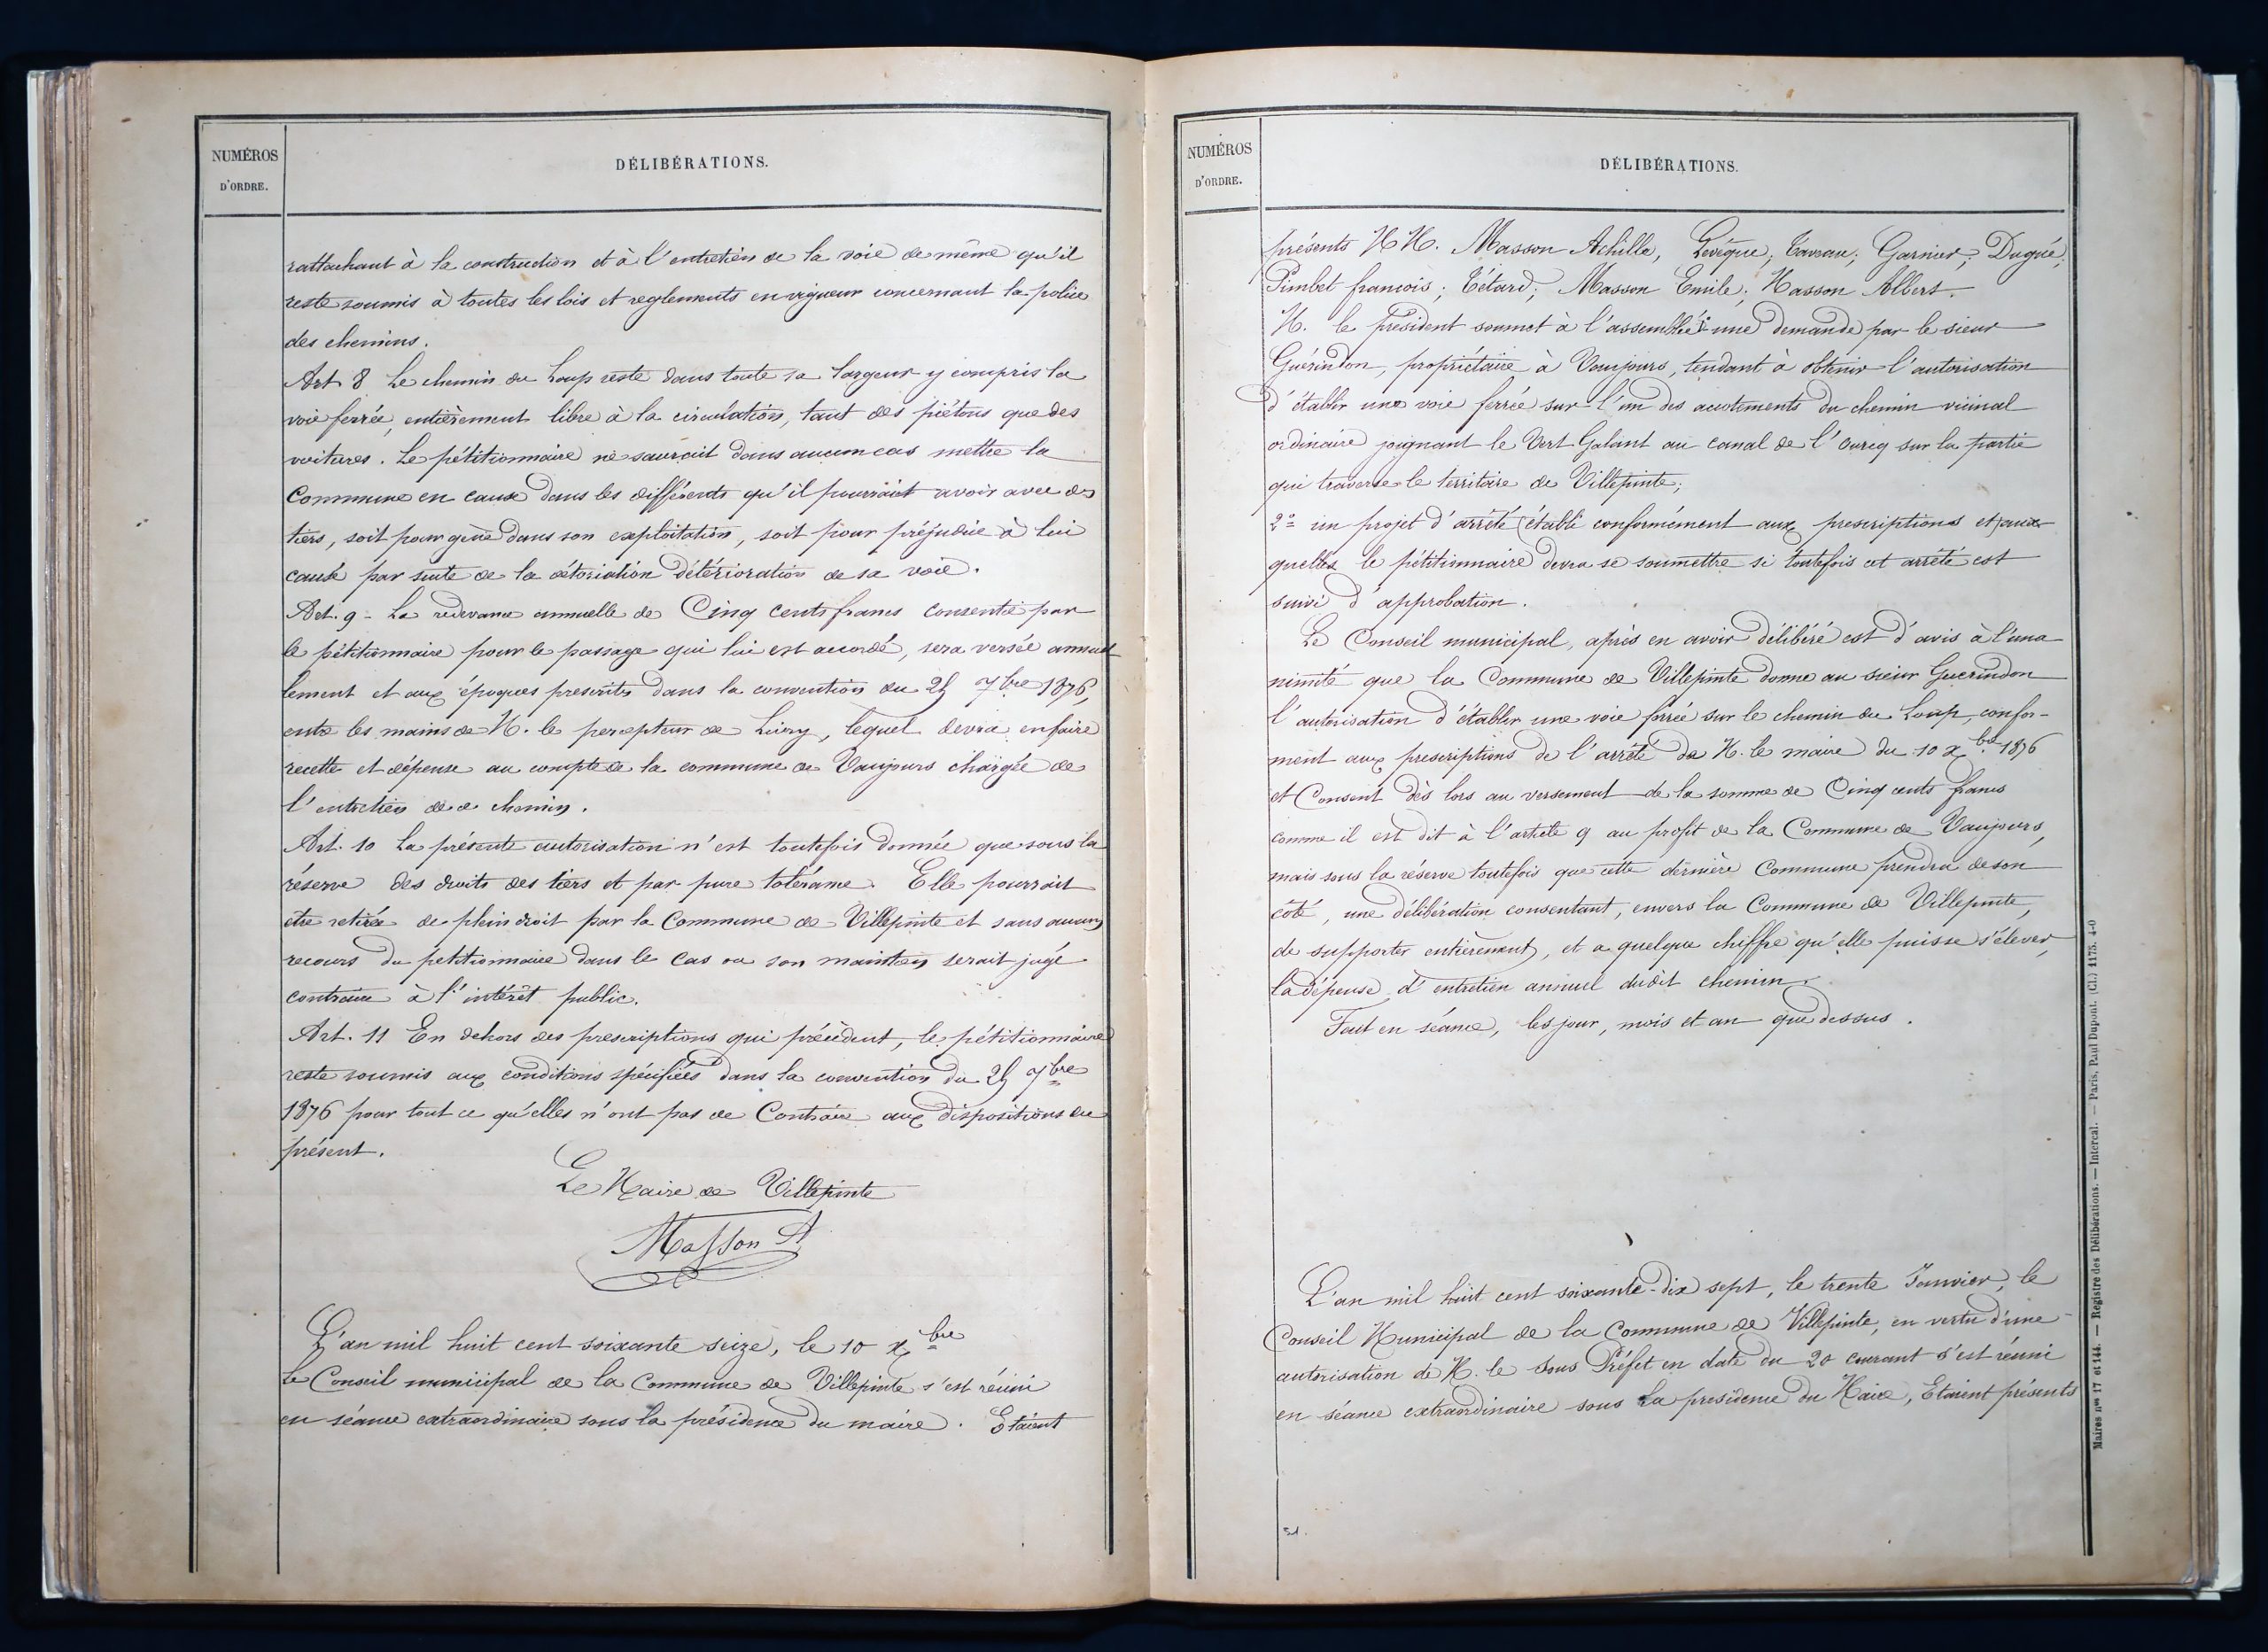 NUMÉROS
D'ORDRE.
DÉLIBÉRATIONS.
rattachant à la construction et à l'entretien de la voie de même qu'il
reste soumis à toutes les lois et reglements en vigueur concernant la police
des chemins.
Art 8 Le chemin du Loup reste dans toute sa largeur y compris la
voie ferrée, entièrement libre à la circulation, tant des piétons que des
voitures. Le pétitionnaire ne saurait dans aucun cas mettre la
Commune en cause dans les différents qu'il pourrait avoir avec des
tiers, soit pour gêne dans son exploitation, soit pour préjudice à lui
causé par suite de la détoriation détérioration de sa voie.
Art. 9 - La redevance annuelle de Cinq cents francs consentie par
le pétitionnaire pour le passage qui lui est accordé, sera versée annuel
lement et aux époques prescrites dans la convention du 25 7bre 1876,
entre les mains de M. le percepteur de Livry, lequel devra en faire
recette et dépense au compte de la commune de Vaujours chargée de
l'entretien de ce chemin.
Art. 10 La présente autorisation n'est toutefois donnée que sous la
réserve des droits des tiers et par pure tolérance. Elle pourrait
être retirée de plein droit par la Commune de Villepinte et sans aucun
recours du pétitionnaire dans le Cas ou son maintien serait jugé
contraire à l'intérêt public.
Art. 11 En dehors des prescriptions qui précèdent, le pétitionnaire
reste soumis aux conditions spécifiées dans la convention du 25 7bre
1876 pour tout ce qu'elles n'ont pas de Contraire aux dispositions du
présent.
Le Maire de Villepinte
Masson A
L'an mil huit cent soixante seize, le 10 Xbre
Le Conseil municipal de la Commune de Villepinte s'est réuni
en séance extraordinaire sous la présidence du maire. Etaient
NUMÉROS
D'ORDRE.
DÉLIBÉRATIONS.
présents MM. Masson Achille, Levêque; Taveau; Garnier; Dugué;
Pimbet francois; Tétard; Masson Emile; Masson Albert.
M. le Président soumet à l'assemblée une demande par le sieur
Guérindon, propriétaire à Vaujours, tendant à obtenir l'autorisation
d'établir une voie ferrée sur l'un des accotements du chemin vicinal
ordinaire joignant le Vert Galant au canal de l'Ourcq sur la partie
qui traverse le territoire de Villepinte;
2° un projet d'arrêté établi conformément aux prescriptions et aux
quelles le pétitionnaire devra se soumettre si toutefois cet arrêté est
suivi d'approbation.
Le Conseil municipal, après en avoir délibéré est d'avis à l'una
nimité que la Commune de Villepinte donne au sieur Guerindon
l'autorisation d'établir une voie ferrée sur le chemin du Loup, confor-
ment aux prescriptions de l'arrêté de M. le maire du 10 Xbre 1876
et Consent dès lors au versement de la somme de Cinq cents francs
comme il est dit à l'article 9 au profit de la Commune de Vaujours,
mais sous la réserve toutefois que cette dernière Commune prendra de son
côté, une délibération consentant, envers la Commune de Villepinte,
de supporter entièrement, et a quelque chiffre qu'elle puisse s'élever,
la dépense d'entretien annuel dudit chemin.
Fait en séance, les jour, mois et an que dessus.
L'an mil huit cent soixante-dix sept, le trente Janvier, le
Conseil Municipal de la Commune de Villepinte, en vertu d'une
autorisation de M. le Sous Préfet en date du 20 courant s'est réuni
en séance extraordinaire sous la présidence du Maire, Etaient présents
51.
Maires nos 17 et 144. — Registre des Délibérations. — Intercal. — Paris, Paul Dupont. (Cl.) 1175. 4-0